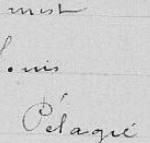 mist
Louis
Pélagie